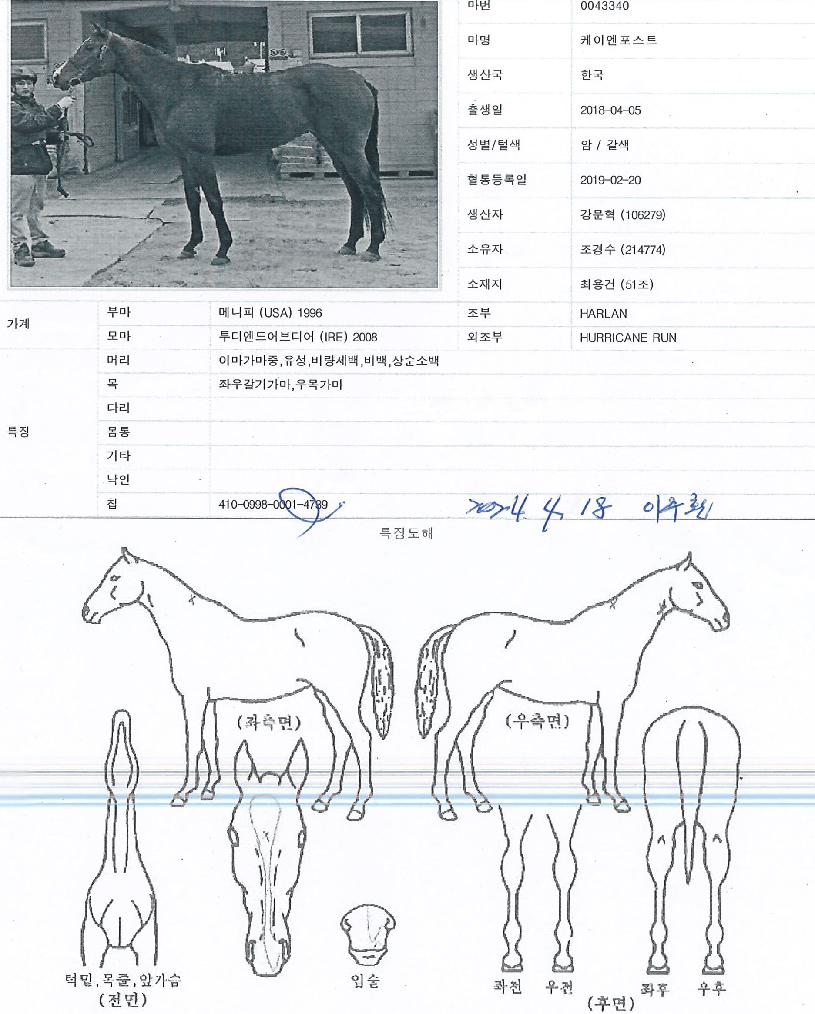 마번 0043340
마명 케이엔포스트
생산국 한국
출생일 2018-04-05
성별/털색 암 / 갈색
혈통등록일 2019-02-20
생산자 강문혁 (106279)
소유자 조경수 (214774)
소재지 최용건 (51조)
가계 부마 메니피 (USA) 1996 조부 HARLAN
모마 투디엔드어브디어 (IRE) 2008 외조부 HURRICANE RUN
특징 머리 이마가마중,유성,비량세백,비백,상순소백
목 좌우갈기가마,우목가마
다리
몸통
기타
낙인
칩 410-0998-0001-4789
2024. 4. 18
특징도해
(좌측면) (우측면)
턱밑,목줄,앞가슴 입술 좌전 우전 좌후 우후
(전면) (후면)